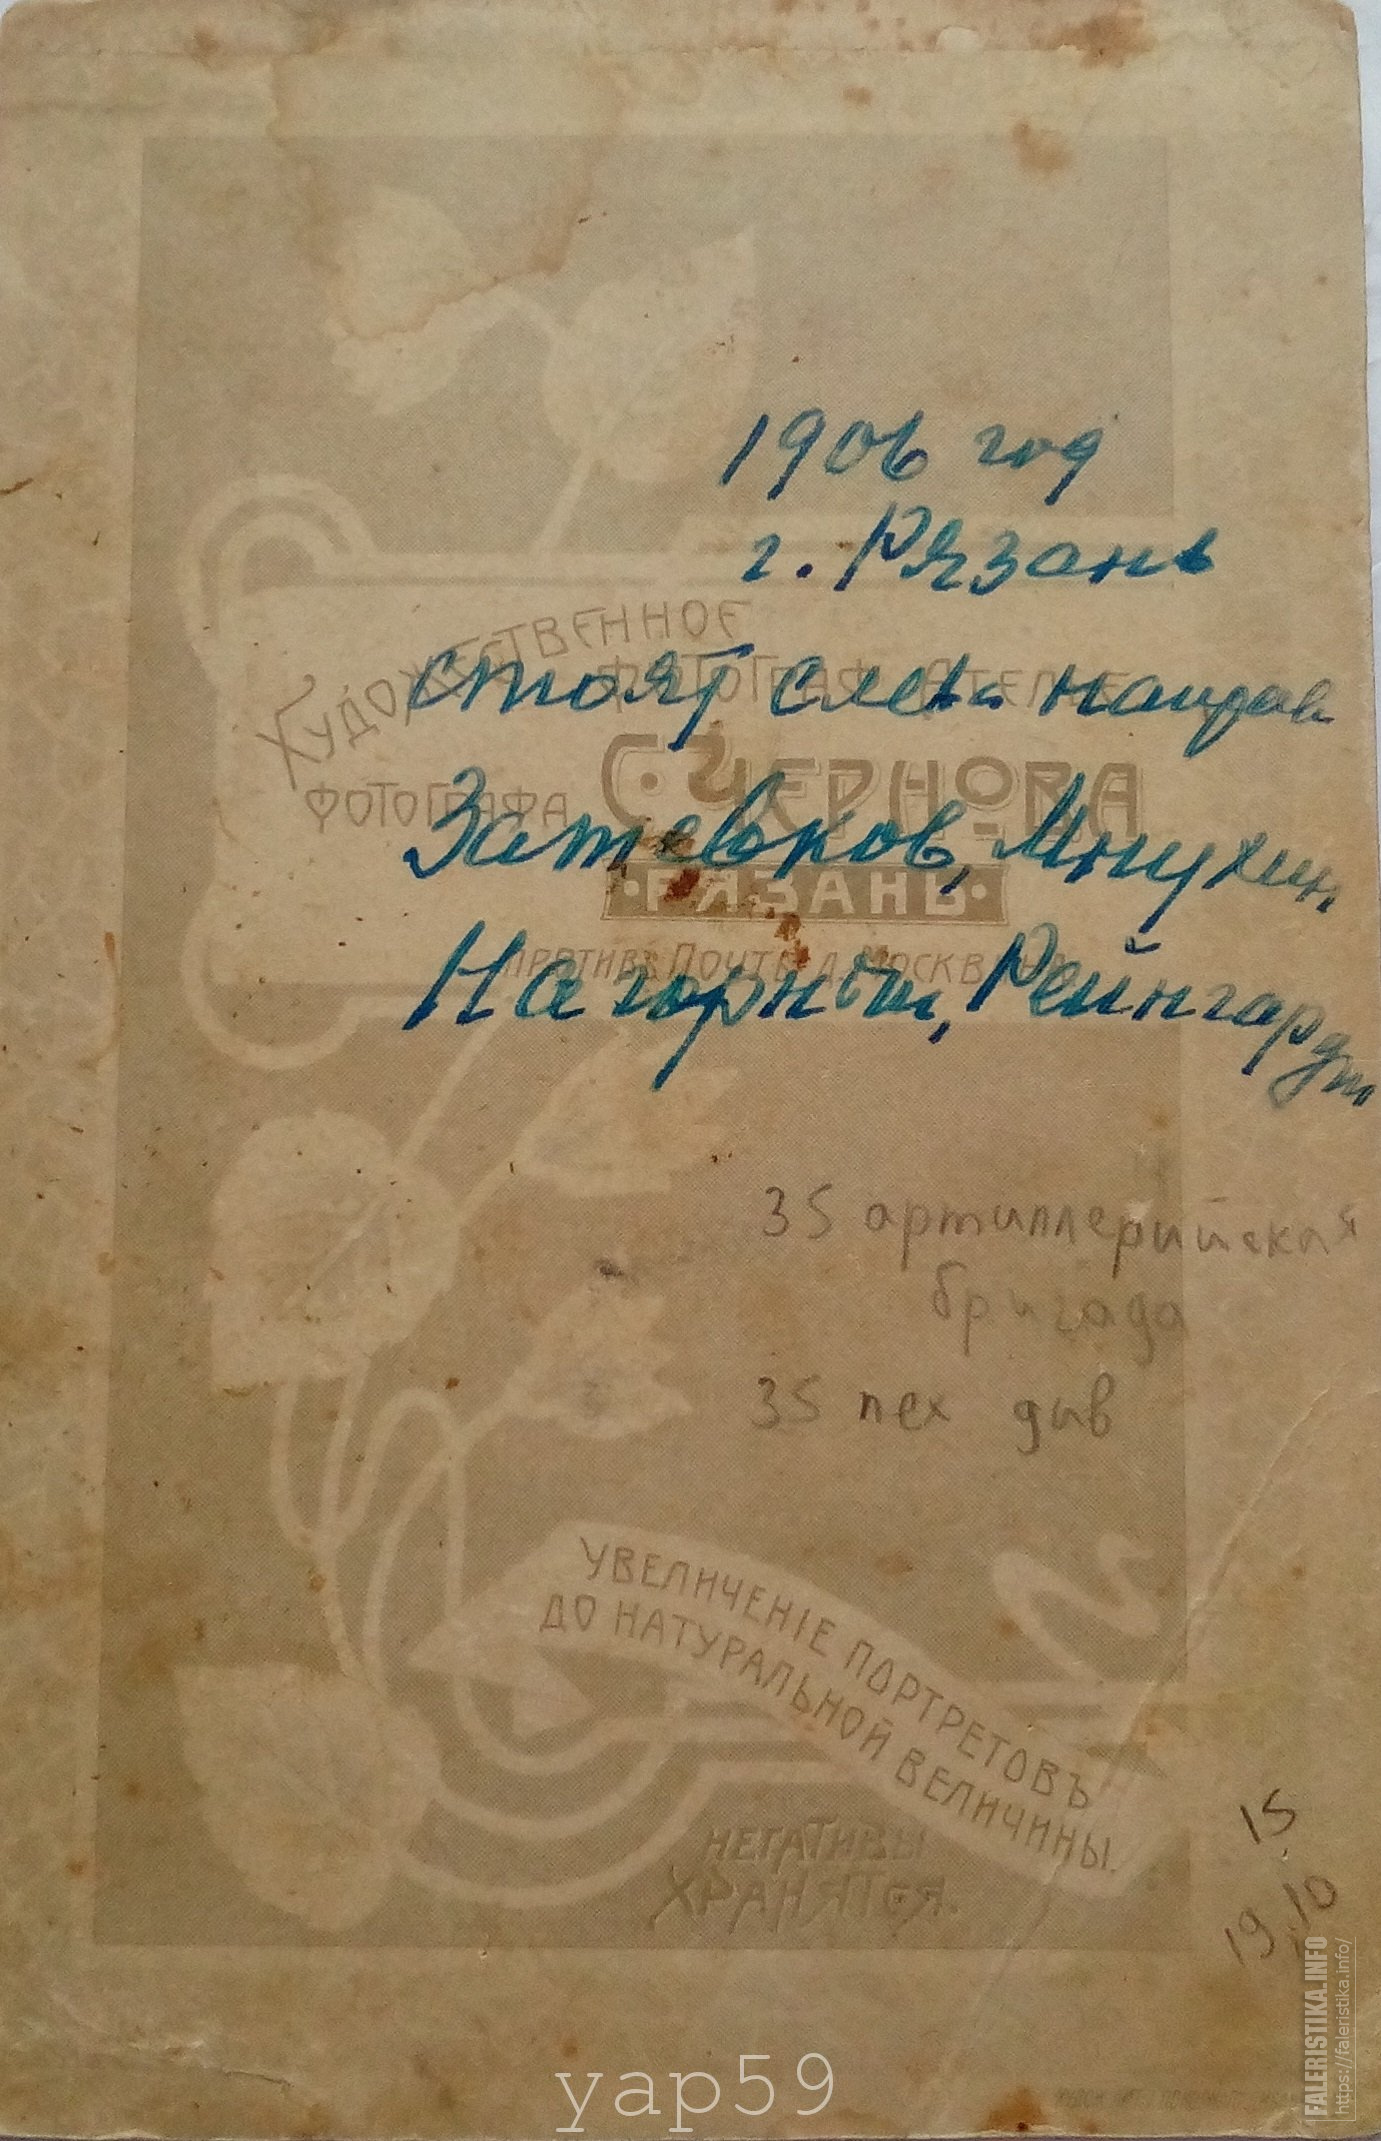 1906 год
г. Рязань
ХУДОЖЕСТВЕННОЕ
стоят слева направ
ФОТОГРАФА С. ЧЕРНОВА
Затевков, Мнухин,
РЯЗАНЬ
ПРОТИВЪ ПОЧТЫ Д. МОСКВИНА
Нагорный, Рейнгардт,
35 артиллерийская
бригада
35 пех див
УВЕЛИЧЕНІЕ ПОРТРЕТОВЪ
ДО НАТУРАЛЬНОЙ ВЕЛИЧИНЫ.
НЕГАТИВЫ
ХРАНЯТСЯ.
15
19,10
FALERISTIKA.INFO
https://faleristika.info/
yap59